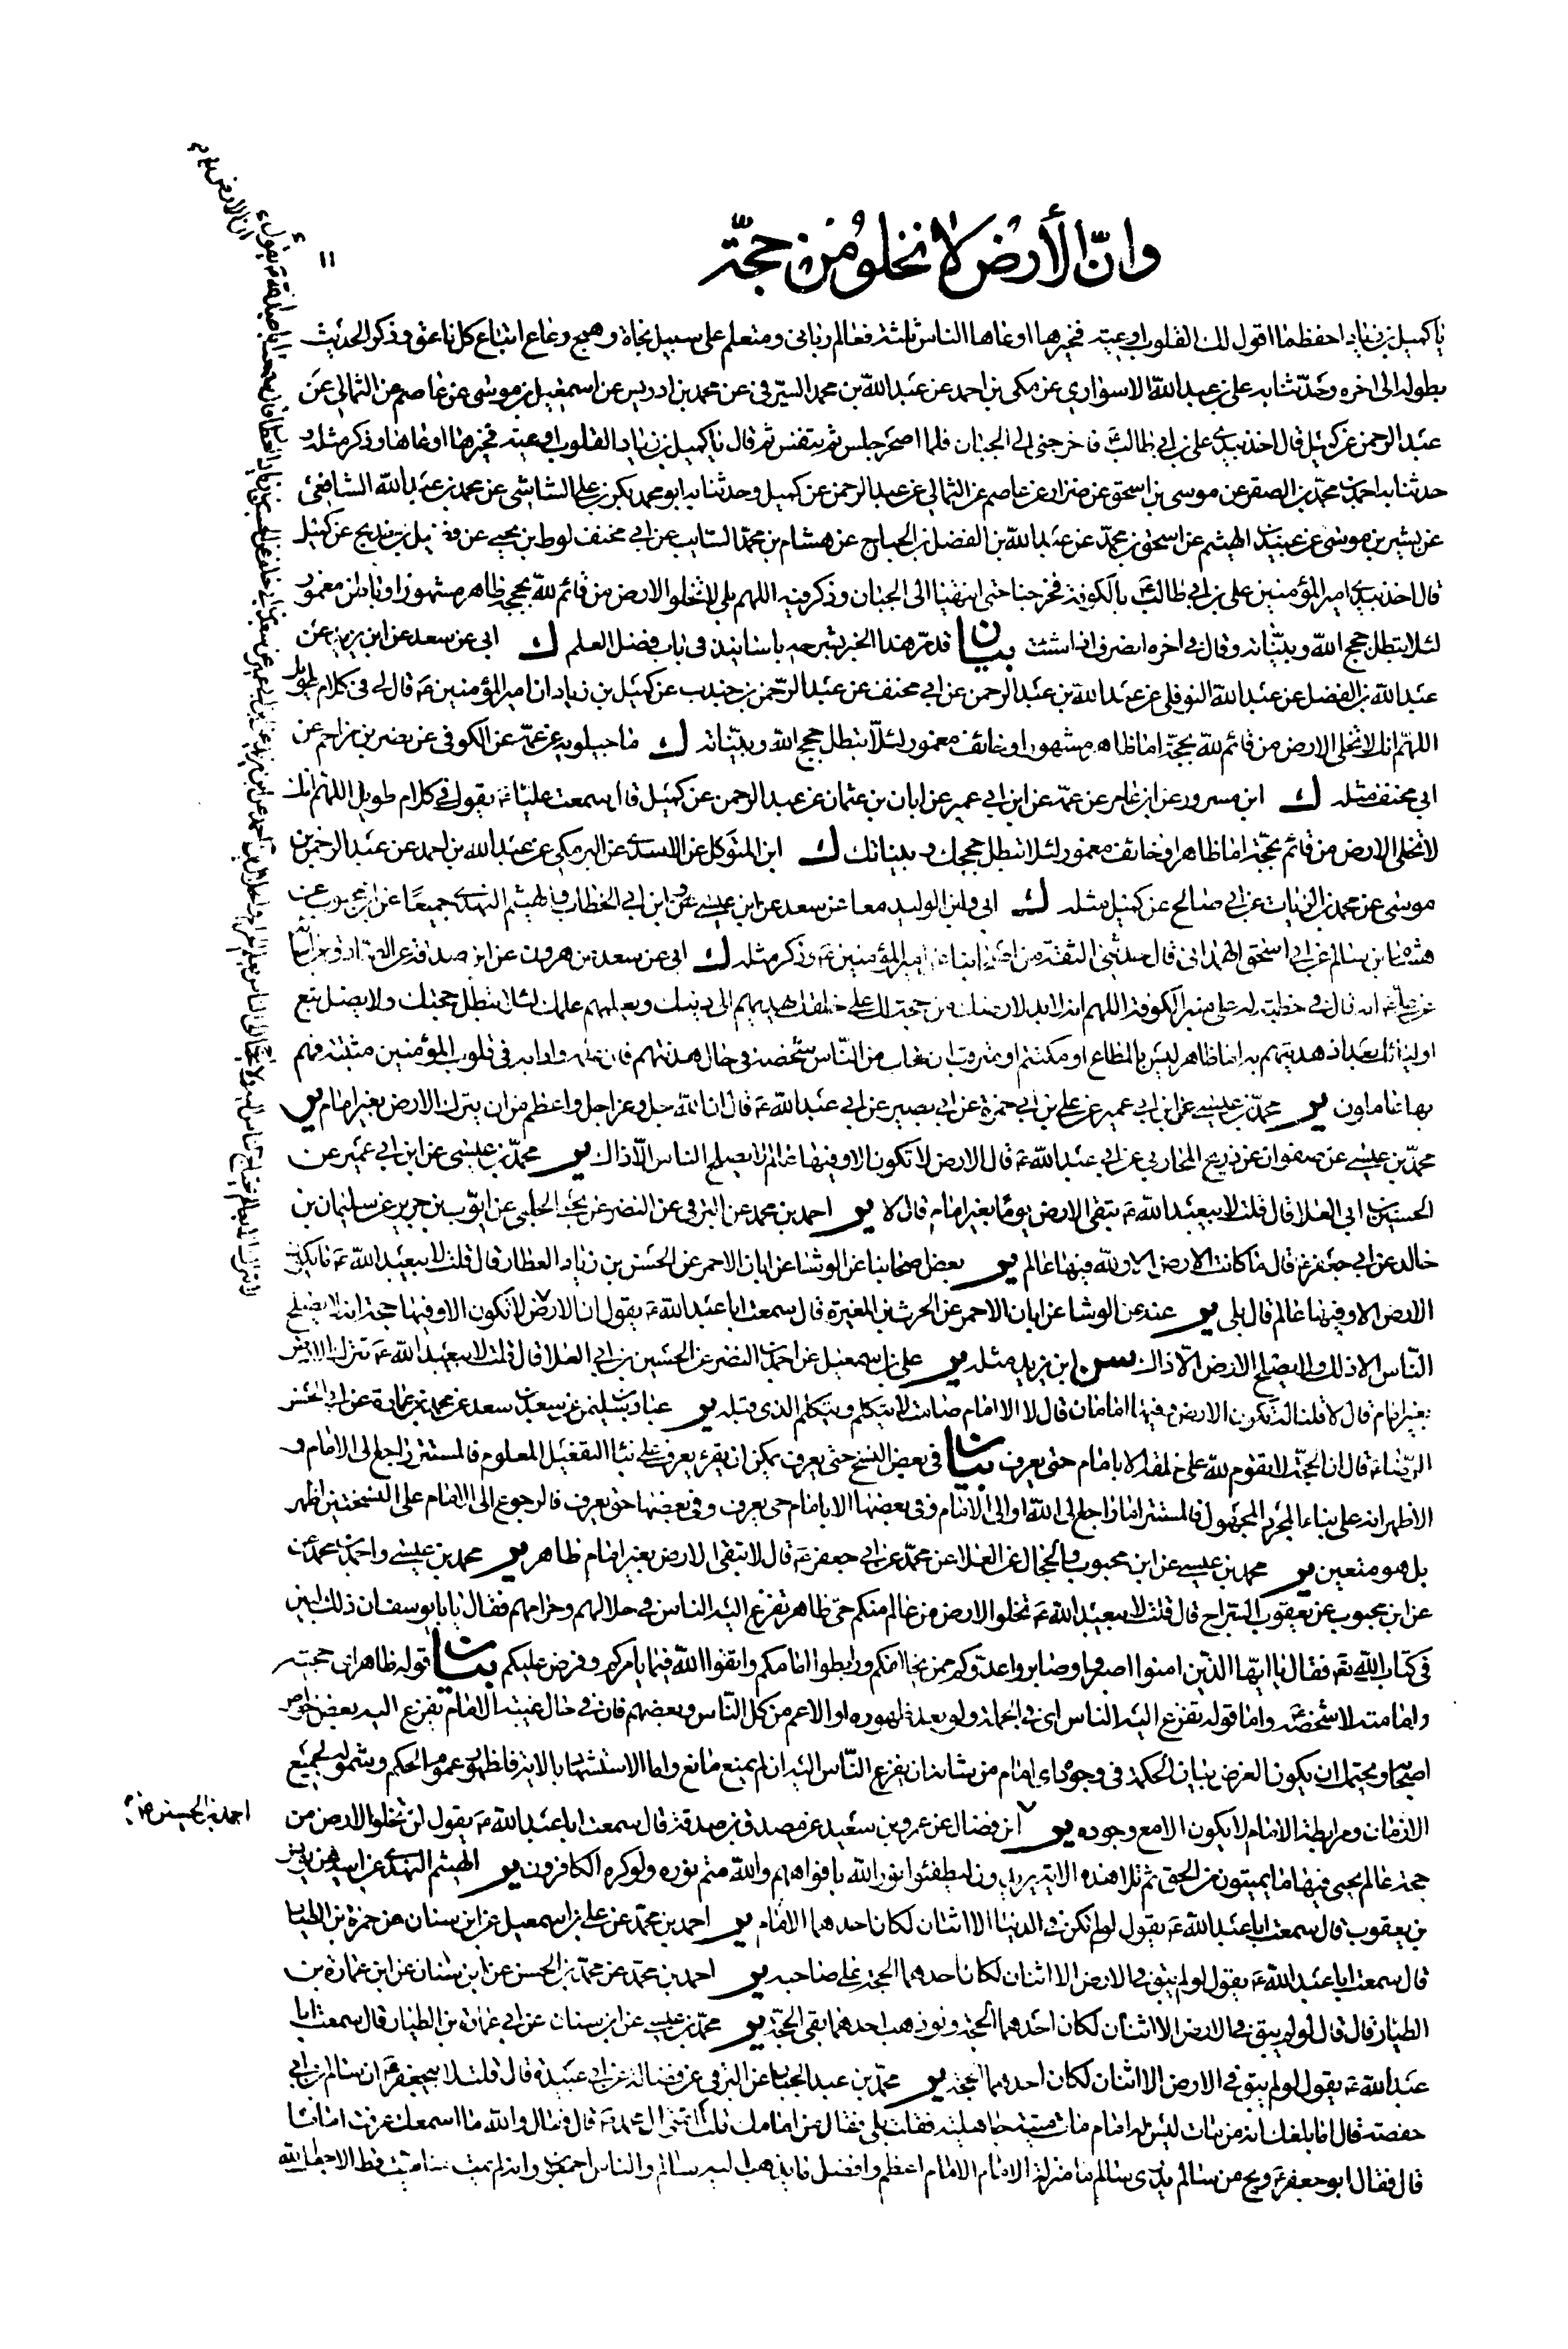 وانّ الأرض لا تخلو من حجّة
١١
يا كميل بن زياد احفظ ما اقول لك القلوب اوعية فخيرها اوعاها الناس ثلثة فعالم ربانى ومتعلم على سبيل نجاة وهمج رعاع اتباع كل ناعق وذكر الحديث
بطوله الى اخره وحدّثنا به على بن عبد الله الاسوارى عن مكى بن احمد عن عبد الله بن محمد عن محمد بن ادريس عن اسمعيل بن موسى عن عاصم عن الثمالى عن
عبد الرحمن عن كميل قال اخذ بيدى على بن ابى طالب فاخرجنى الى الجبان فلما اصحر جلس ثم تنفس ثم قال يا كميل بن زياد القلوب اوعية فخيرها اوعاها وذكر مثله و
حدثنا به احمد بن محمد بن الصقر عن موسى بن اسحق عن ضرار عن عاصم عن الثمالى عن عبد الرحمن عن كميل وحدثنا به ابو محمد بكر بن على الشاشى عن محمد بن عبد الله الشافعى
عن بشر بن موسى عن عبيد بن الهيثم عن اسحق بن محمد عن عبد الله بن الفضل بن الحباج عن هشام بن محمد السايب عن ابى مخنف لوط بن يحيى عن فضيل بن خديج عن كميل
قال اخذ بيدى امير المؤمنين على بن ابى طالب بالكوفة فخرجنا حتى انتهينا الى الجبان وذكر فيه اللهم بلى لا تخلو الارض من قائم لله بحجة ظاهر مشهور او باطن مغمور
لئلا يبطل حجج الله وبيناته وقال فى اخره انصرف اذا شئت بيان قد مر هذا الخبر بشرحه باسانيد فى باب فضل العلم ك ابى عن سعد عن ابن يزيد عن
عبد الله بن الفضل عن عبد الله النوفلى عن عبد الله بن عبد الرحمن عن ابى مخنف عن عبد الرحمن بن جندب عن كميل بن زياد ان امير المؤمنين ع قال لى فى كلام طويل
اللهم انك لا تخلى الارض من قائم لله بحجة اما ظاهر مشهور او خائف مغمور لئلا يبطل حجج الله وبيناته ك ماجيلويه عن عمه عن الكوفى عن نصر بن مزاحم عن
ابى مخنف مثله ك ابن مسرور عن ابن عامر عن عمه عن ابن ابى عمير عن ابان بن عثمان عن عبد الرحمن عن كميل قال سمعت عليا ع يقول فى كلام طويل اللهم انك
لا تخلى الارض من قائم بحجة اما ظاهر او خائف مغمور لئلا تبطل حججك وبيناتك ك ابن المتوكل عن الاسدى عن البرمكى عن عبد الله بن احمد عن عبد الرحمن بن
موسى عن محمد بن الزيات عن ابى صالح عن كميل مثله ك ابى وابن الوليد معا عن سعد عن ابن عيسى وابن ابى الخطاب والهيثم النهدى جميعا عن ابن محبوب عن
هشام بن سالم عن ابى اسحق الهمدانى قال حدثنى الثقة من اصحابنا عن امير المؤمنين ع وذكر مثله ك ابى عن سعد عن هرون عن ابن صدقة عن الصادق عن آبائه
عن على ع انه قال فى خطبة له على منبر الكوفة اللهم انه لا بد لارضك من حجة لك على خلقك يهديهم الى دينك ويعلمهم علمك لئلا تبطل حجتك ولا يضل تبع
اوليائك بعد اذ هديتهم به اما ظاهر ليس بالمطاع او مكتتم او مترقب ان غاب من الناس شخصه فى حال هدنتهم فان علمه وادابه فى قلوب المؤمنين مثبتة فهم
بها عاملون ير محمد بن عيسى عن ابن ابى عمير عن على بن ابى حمزة عن ابى بصير عن ابى عبد الله ع قال ان الله جل وعز اجل واعظم من ان يترك الارض بغير امام ير
محمد بن عيسى عن صفوان عن ذريح المحاربى عن ابى عبد الله ع قال الارض لا تكون الا وفيها عالم لا يصلح الناس الا ذاك ير محمد بن عيسى عن ابن ابى عمير عن
الحسين بن ابى العلا قال قلت لابيعبد الله ع تبقى الارض يوما بغير امام قال لا ير احمد بن محمد عن البرقى عن النضر عن يحيى الحلبى عن ايوب بن حر عن سليمان بن
خالد عن ابى جعفر ع قال ما كانت الارض الا ولله فيها عالم ير بعض اصحابنا عن الوشا عن ابان الاحمر عن الحسن بن زياد العطار قال قلت لابيعبد الله ع تكون
الارض الا وفيها عالم قال بلى ير عنه عن الوشا عن ابان الاحمر عن الحرث بن المغيرة قال سمعت ابا عبد الله ع يقول ان الارض لا تكون الا وفيها حجة انه لا يصلح
النّاس الا ذلك ولا يصلح الارض الا ذاك سن ابن يزيد مثله ير على بن اسمعيل عن احمد بن النضر عن الحسين بن ابى العلا قال قلت لابيعبد الله ع تترك الارض
بغير امام قال لا قلنا له تكون الارض وفيها امامان قال لا الا امام صامت لا يتكلم ويتكلم الذى قبله ير عباد بن سليمن عن سعد بن سعد عن محمد بن عمارة عن ابى الحسن
الرضا ع قال ان الحجة لا تقوم لله على خلقه الا بامام حتى يعرف بيان فى بعض النسخ حتى يعرف يمكن ان يقرء يعرف على بناء التفعيل المعلوم فالمستتر راجع الى الامام و
الاظهر انه على بناء المجرد المجهول فالمستتر اما راجع الى الله او الى الامام وفى بعضها الا بامام حى يعرف وفى بعضها حق يعرف فالرجوع الى الامام على النسختين اظهر
بل هو متعين ير محمد بن عيسى عن ابن محبوب والحجال عن العلا عن محمد عن ابى جعفر ع قال لا تبقى الارض بغير امام ظاهر ير محمد بن عيسى واحمد بن محمد
عن ابن محبوب عن يعقوب السراج قال قلت لابيعبد الله ع تخلو الارض من عالم منكم حى ظاهر تفزع اليه الناس فى حلالهم وحرامهم فقال يا با يوسف ان ذلك لبين
فى كتاب الله تع فقال يا ايها الذين امنوا اصبروا وصابروا عدوكم ممن يخالفكم ورابطوا امامكم واتقوا الله فيما يامركم وفرض عليكم بيان قوله ظاهر اى حجيته
وامامته لا شخصه واما قوله تفزع اليه الناس اى فى الجملة ولو بعد ظهوره او الاعم من كل الناس وبعضهم فان فى حال غيبة الامام يفزع اليه بعض خواص
اصحابه ويحتمل ان يكون الغرض بيان الحكمة فى وجود اى امام من شانه ان يفزع الناس اليه ان لم يمنع مانع واما الاستشهاد بالاية فلظهور عموم الحكم وشموله لجميع
الازمان ومرابطة الامام لا يكون الا مع وجوده ير ابن فضال عن عمرو بن سعيد عن مصدق بن صدقة قال سمعت ابا عبد الله ع يقول لن تخلوا الارض من
حجة عالم يحيى فيها ما يميتون من الحق ثم تلا هذه الاية يريدون ليطفئوا نور الله بافواههم والله متم نوره ولو كره الكافرون ير الهيثم النهدى عن ابيه عن يونس
بن يعقوب قال سمعت ابا عبد الله ع يقول لو لم تكن فى الدنيا الا اثنان لكان احدهما الامام ير احمد بن محمد عن على بن اسمعيل عن ابن سنان عن حمزة بن الطيار
قال سمعت ابا عبد الله ع يقول لو لم يبق فى الارض الا اثنان لكان احدهما الحجة على صاحبه ير احمد بن محمد عن محمد بن الحسن عن ابن سنان عن ابن عمارة بن
الطيار قال قال لو لم يبق فى الارض الا اثنان لكان احدهما الحجة ولو ذهب احدهما بقى الحجة ير محمد بن عيسى عن ابن سنان عن ابى عمارة بن الطيار قال سمعت ابا
عبد الله ع يقول لو لم يبق فى الارض الا اثنان لكان احدهما الحجة ير محمد بن عبد الجبار عن البرقى عن فضالة عن ابى عبيدة قال قلت لابيجعفر ع ان سالم بن ابى
حفصة قال اما بلغك انه من مات ليس له امام مات ميتة جاهلية فقلت بلى فقال من امامك قلت ال محمد ع قال فقال والله ما اسمعك عرفت اماما
قال فقال ابو جعفر ع ويح من سالم يدرى سالم ما منزلة الامام الامام اعظم وافضل مما يذهب اليه سالم والناس اجمعون وانه لم يمت منا ميت قط الا جعل الله
احمد بن الحسن